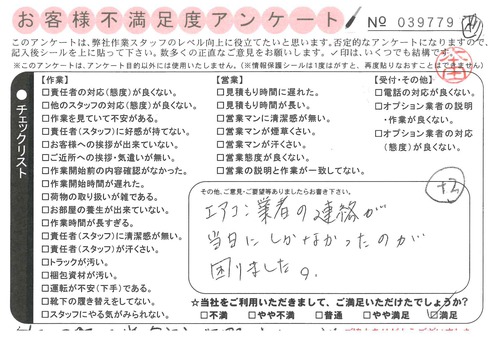 お客様不満足度アンケート
№ 039779
このアンケートは、弊社作業スタッフのレベル向上に役立てたいと思います。否定的なアンケートになりますので、
記入後シールを上に貼って下さい。数多くの正直なご意見をお願いします。✓印は、いくつでも結構です。
※このアンケートは、アンケート目的以外には使用いたしません。(※情報保護シールは1度はがすと、再度貼りなおすことはできません)
チェックリスト
【作業】
□責任者の対応(態度)が良くない。
□他のスタッフの対応(態度)が良くない。
□作業を見ていて不安がある。
□責任者(スタッフ)に好感が持てない。
□お客様への挨拶が出来ていない。
□ご近所への挨拶・気遣いが無い。
□作業開始前の内容確認がなかった。
□作業開始時間が遅れた。
□荷物の取り扱いが雑である。
□お部屋の養生が出来ていない。
□作業時間が長すぎる。
□責任者(スタッフ)に清潔感が無い。
□責任者(スタッフ)が汗くさい。
□トラックが汚い。
□梱包資材が汚い。
□運転が不安(下手)である。
□靴下の履き替えをしてない。
□スタッフにやる気がみられない。
【営業】
□見積もり時間に遅れた。
□見積もり時間が長い。
□営業マンに清潔感が無い。
□営業マンが煙草くさい。
□営業マンが汗くさい。
□営業態度が良くない。
□営業の説明と作業が一致してない。
【受付・その他】
□電話の対応が良くない。
□オプション業者の説明
・作業が良くない。
□オプション業者の対応
(態度)が良くない。
その他、ご意見・ご要望等ありましたらお書き下さい。
エアコン業者の連絡が
当日にしかなかったのが
困りました。
☆当社をご利用いただきまして、ご満足いただけたでしょうか?
□不満 □やや不満 □普通 □やや満足 ☑満足